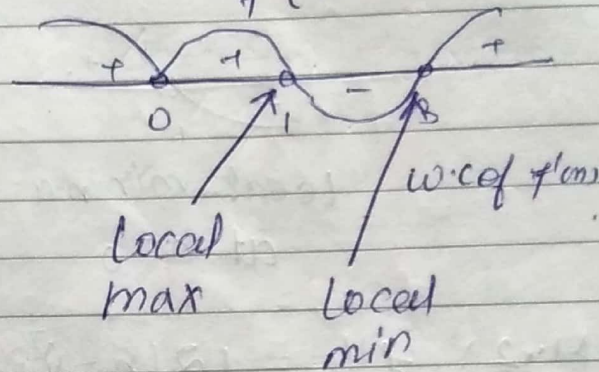 + + - +
0 1 3
w.c of f'(x)
Local
max
Local
min